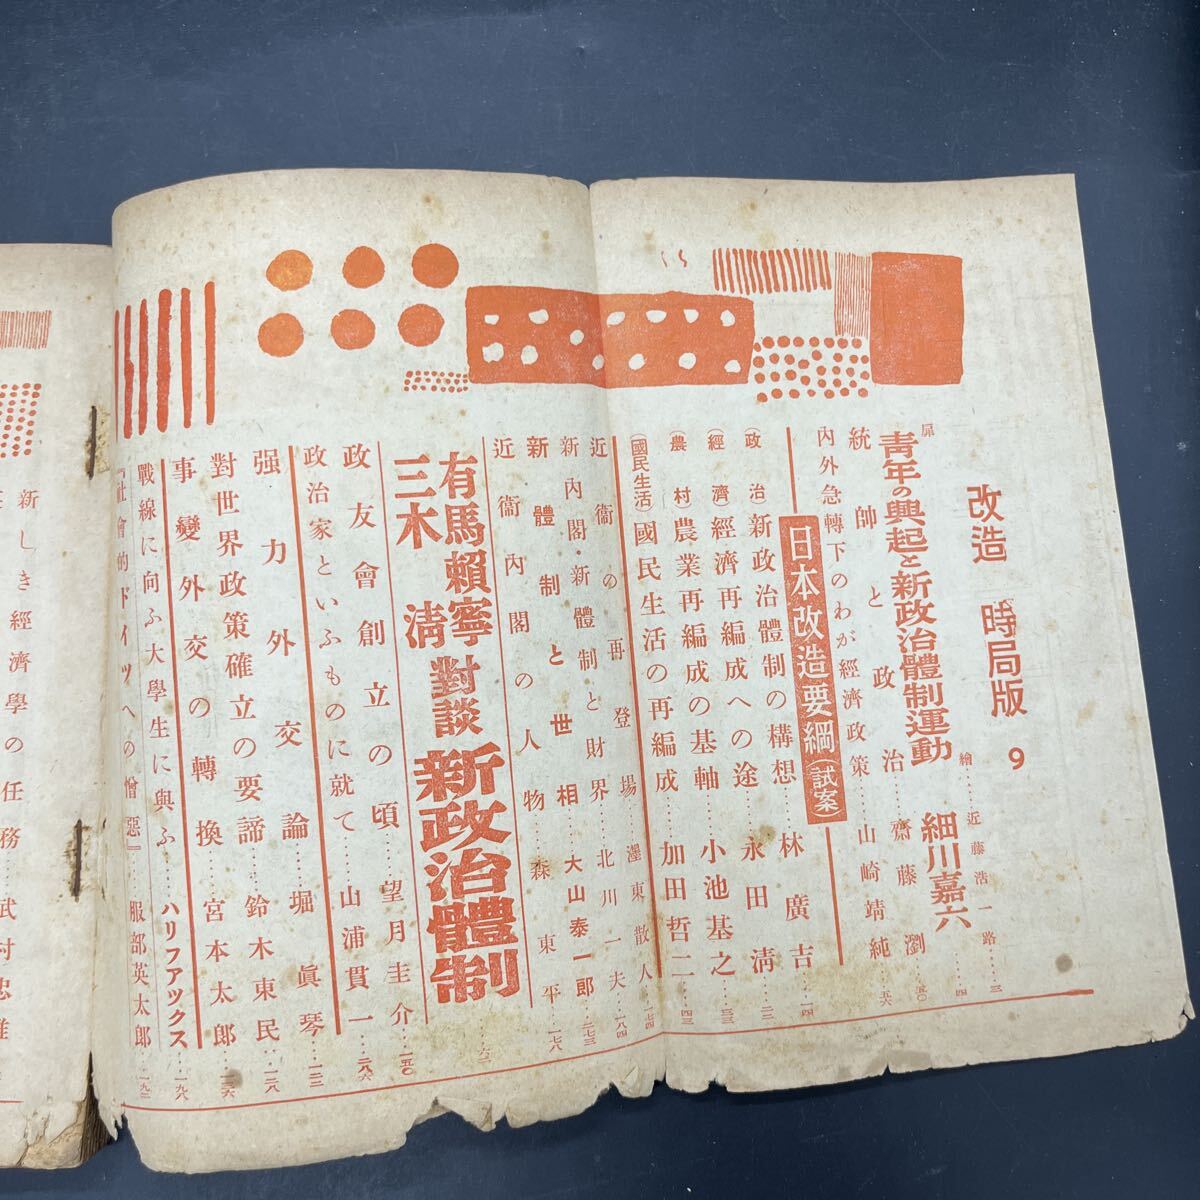 改造 時局版 9
扉 繪 近藤浩一路…三
青年の興起と新政治體制運動 細川嘉六…四
統帥と政治…齋藤瀏…五〇
內外急轉下のわが經濟政策…山崎靖純…五六
日本改造要綱(試案)
(政治)新政治體制の構想…林廣吉…一四
(經濟)經濟再編成への途…永田淸…二二
(農村)農業再編成の基軸…小池基之…三三
(國民生活)國民生活の再編成…加田哲二…四三
近衞の再登場…濹東散人…一七四
新內閣・新體制と財界…北川一夫…一八四
新體制と世相…大山泰一郎…二七三
近衞內閣の人物…森東平…一七八
有馬賴寧
三木淸
對談 新政治體制
政友會創立の頃…望月圭介…一五〇
政治家といふものに就て…山浦貫一…二八六
强力外交論…堀眞琴…一二二
對世界政策確立の要諦…鈴木東民…一二八
事變外交の轉換…宮本太郎…一三六
戰線に向ふ大學生に與ふ…ハリフアツクス…一九八
『社會的ドイツへの憎惡』…服部英太郎…一九二
新しき經濟學の任務…武村忠雄